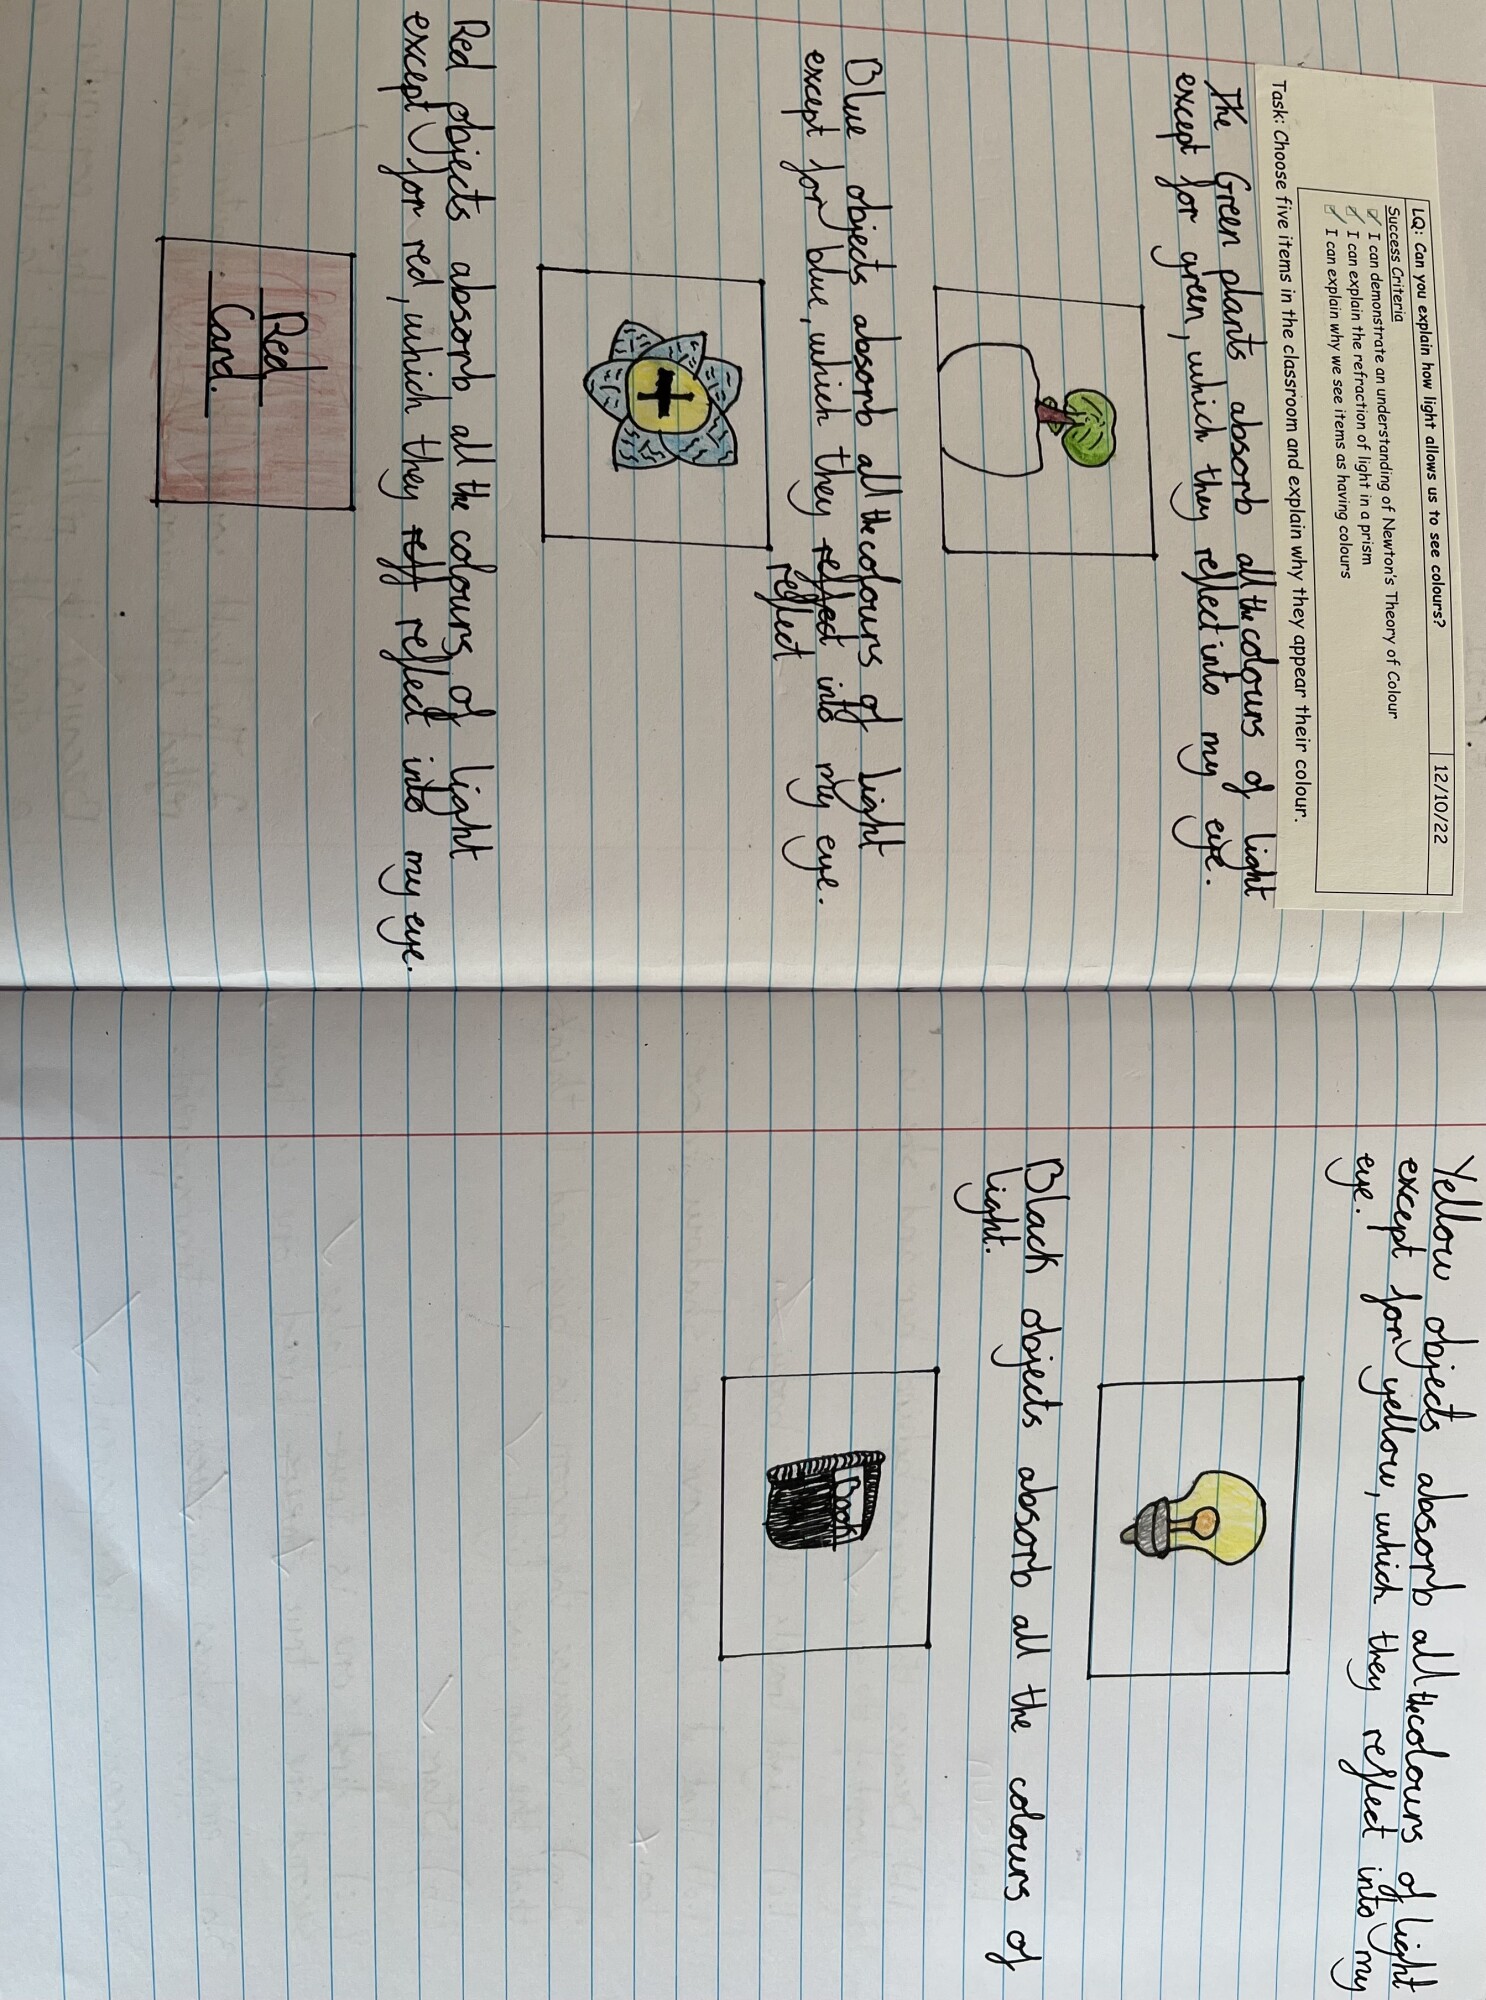 LQ: Can you explain how light allows us to see colours? 12/10/22
Success Criteria
I can demonstrate an understanding of Newton's Theory of Colour
I can explain the refraction of light in a prism
I can explain why we see items as having colours
Task: Choose five items in the classroom and explain why they appear their colour.
The Green plants absorb all the colours of light
except for green, which they reflect into my eye.
Blue objects absorb all the colours of light
except for blue, which they reflect into my eye.
reflect
Red objects absorb all the colours of light
except for red, which they reff reflect into my eye.
Red
Card.
Yellow objects absorb all the colours of light
except for yellow, which they reflect into my
eye.
Black objects absorb all the colours of
light.
Book